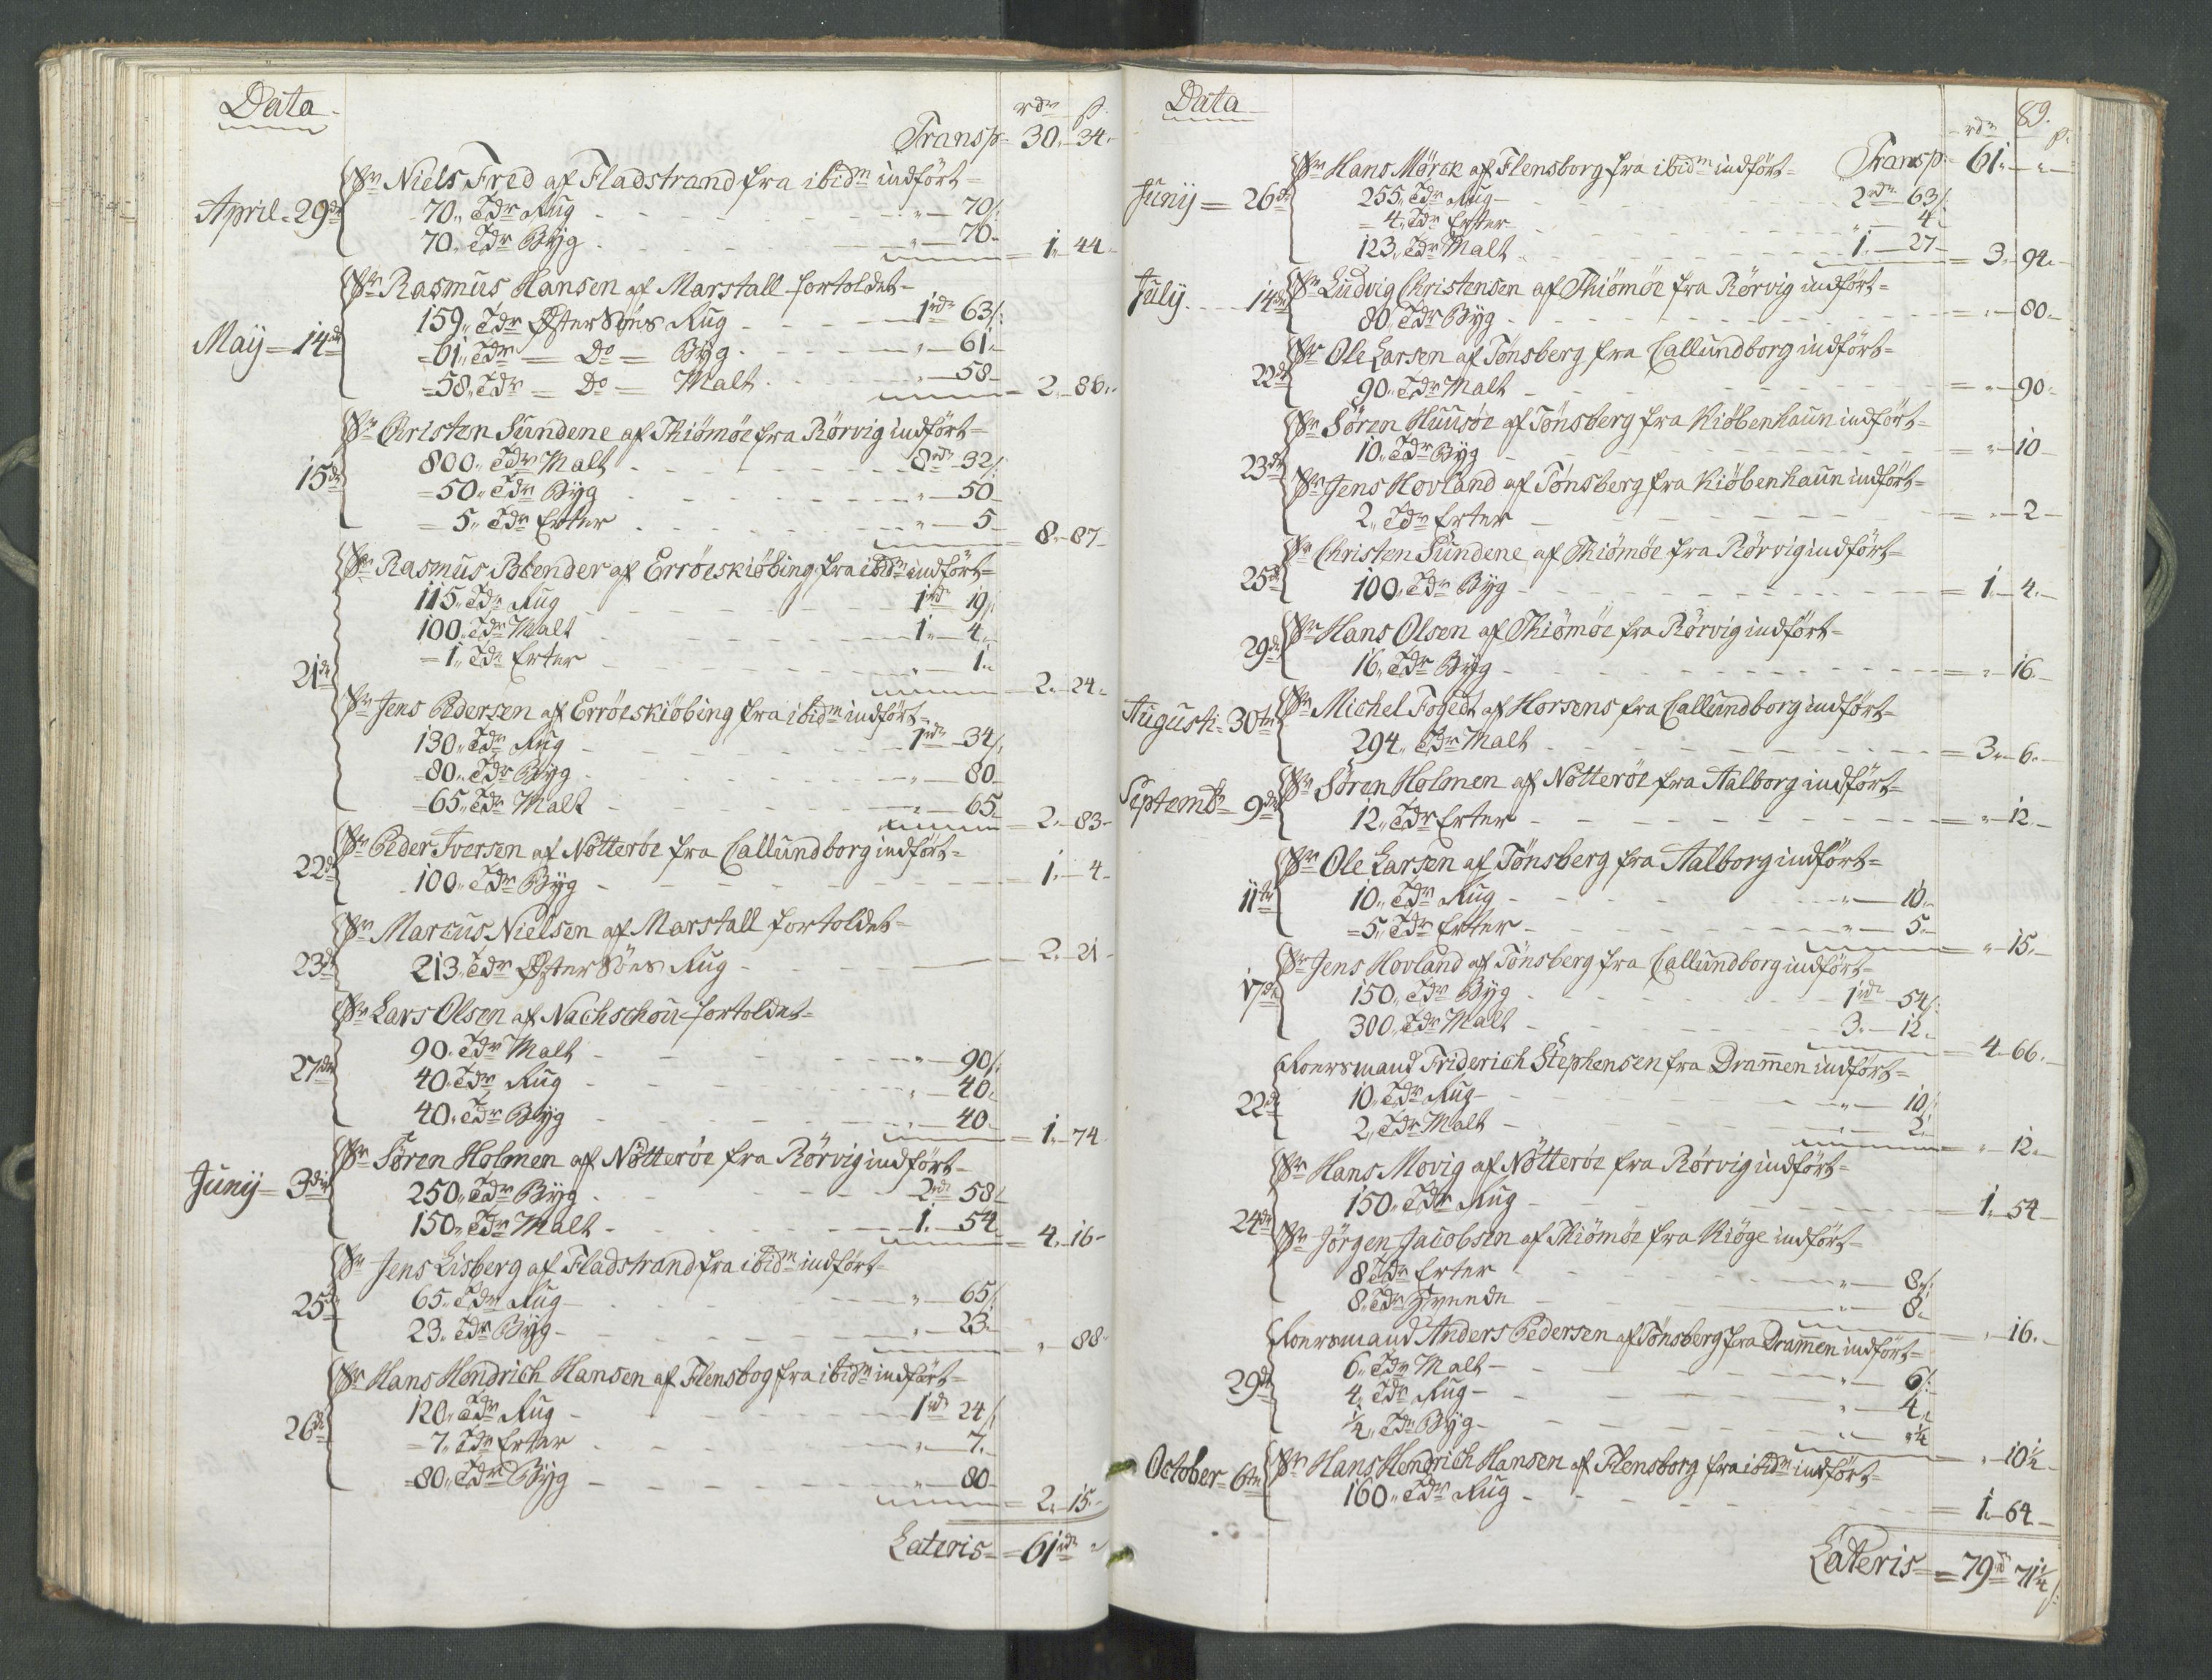 Data
rdr s.
Transp: 30.-34.
Sr Niels Fred af Fladstrand fra ibidm indført=
April=29de 70., Tdr Rug - „-70s:
70., Tdr Byg - „-70- = 1.-44.
Sr Rasmus Hansen af Marstall fortoldet-
159., Tdr ØsterSöes Rug - 1rdr 63s:
Maij=14de =61., Tdr = Do = Byg - „-61.
=58., Tdr = Do = Malt - „-58- = 2.-86.
Sr Christen Sundene af Thiömöe fra Rörvig indfört=
800., Tdr Malt - 8rdr 32s:
15de =50., Tdr Byg - „-50-
=5., Tdr Erter - „-5- = 8.-87-
Sr Rasmus Blender af Erröeskiöbing fra ibidm indfört=
115., Tdr Rug - 1rdr 19s:
100., Tdr Malt - 1.-4.
=1., Tdr Erter - „-1.
21de = 2.-24.
Sr Jens Pedersen af Erröeskiöbing fra ibidm indfört-
130., Tdr Rug - 1rdr 34s:
=80., Tdr Byg - „-80-
=65., Tdr Malt - „-65- = 2.-83-
Sr Peder Iversen af Nötteröe fra Callundborg indfört=
22de 100., Tdr Byg - = 1.-4-
Sr Marcus Nielsen af Marstall fortoldet=
23de 213., Tdr ØsterSöes Rug - 2.-21-
Sr Lars Olsen af Nachschou fortoldet=
90., Tdr Malt - „-90s:
27de 40., Tdr Rug - „-40.
40., Tdr Byg - „-40- = 1.-74.
Sr Sören Holmen af Nötteröe fra Rörvig indfört-
Junij=3die 250., Tdr Byg - 2rdr 58s:
150., Tdr Malt - 1.-54 = 4.-16-
Sr Jens Lisberg af Fladstrand fra ibidm indfört=
25de 65., Tdr Rug - „-65s:
23., Tdr Byg - „-23- „-88-
Sr Hans Hendrich Hansen af Flensbog fra ibidm indfört=
120., Tdr Rug - 1rdr 24s:
26de =7., Tdr Erter - „-7.
=80., Tdr Byg - „-80-
= 2.-15-
Lateris = 61rdr „
89.
Data
rdr s.
Transp: 61.-„-
Sr Hans Mörck af Flensborg fra ibidm indfört=
Junij=26de 255., Tdr Rug - 2rdr 63s:
=4., Tdr Erter - „ 4.
123., Tdr Malt - 1.-27- = 3.-94.-
Sr Ludvig Christensen af Thiömöe fra Rörvig indfört=
July 14de 80., Tdr Byg - = „-80.-
Sr Ole Larsen af Tönsberg fra Callundborg indfört=
22de 90., Tdr Malt - = „-90-
Sr Sören Huusöe af Tönsberg fra Kiöbenhaun indfört-
10., Tdr Byg - = „-10-
23de Sr Jens Hovland af Tönsberg fra Kiöbenhaun indfört=
2., Tdr Erter - = „-2-
Sr Christen Sundene af Thiömöe fra Rörvig indfört=
25de 100., Tdr Byg - = 1.-4.-
Sr Hans Olsen af Thiömöe fra Rörvig indfört=
29de 16., Tdr Byg - = „-16-
Sr Michel Fogedt af Horsens fra Callundborg indfört=
Augusti=30te 294., Tdr Malt - = 3.-6.-
Sr Sören Holmen af Nötteröe fra Aalborg indfört=
Septembr 9de 12., Tdr Erter - = „-12.-
Sr Ole Larsen af Tönsberg fra Aalborg indfört=
11te 10., Tdr Rug - „-10.
=5., Tdr Erter - „-5.- = „-15.-
Sr Jens Hovland af Tönsberg fra Callundborg indfört-
17de 150., Tdr Byg - 1rdr 54s:
300., Tdr Malt - 3.-12. = 4.-66.-
Roersmand Friderich Stephensen fra Drammen indfört=
22de 10., Tdr Rug - „-10s:
2., Tdr Malt - „-2.- = „-12.-
Sr Hans Movig af Nötteröe fra Rörvig indfört=
24de 150., Tdr Rug - = 1.-54-
Sr Jörgen Jacobsen af Thiömöe fra Kiöge indfört=
8 Tdr Erter - „-8s:
8., Tdr Hveede - „-8. = „-16.-
Roersmand Anders Pedersen af Tönsberg fra Drammen indfört=
6., Tdr Malt - „-6s:
29de 4., Tdr Rug - „-4.
1/4., Tdr Byg - „ 1/4 „-10 1/4-
October=6te Sr Hans Hendrich Hansen af Flensborg fra ibidm indfört=
160., Tdr Rug - = 1.-64.-
Lateris = 79rd 71 1/4 s: